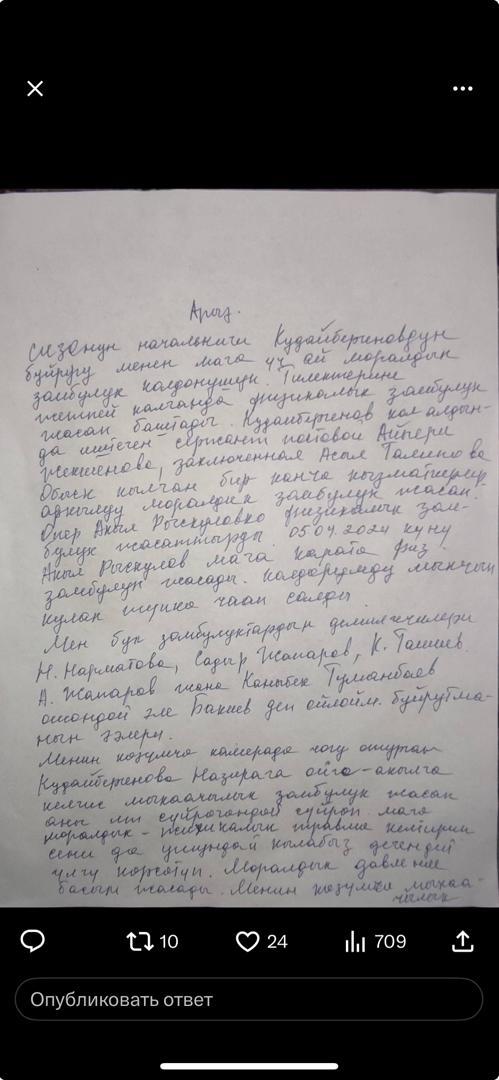 Арыз.
СИЗОнун начальниги Кудайбергеновдун
буйругу менен мага үч ай моралдык
замбулук колдонушун. Тилектерине
жетпей калганда физикалык замбулук
жасап баштады. Кудайбергенов кол алдын-
да иштеген сержант постовой Айпери
Жекшенова, заключенная Асыл
Обыск кылган бир канча кызматкерлер
моралдик замбулук жасап.
Опер Акыл Рыскуловко физикалык зам-
булук жасаттырды. 05.04.2024 күнү
Акыл Рыскулов мага карата физ.
замбулук жасады. колдорумду мыкчып
кулак түшкө чаап салды.
Мен бул замбулуктардын демилгечилери
Н. Нарматова, Садыр Жапаров, К. Ташиев.
А. Жапаров жана Каныбек Туманбаев
ошондой эле Бакиев деп ойлойм. буйрутма-
нын ээлери.
Менин көзүмчө камерада чогу отурган
Кудайбергенова Назирага ойго-акылга
келгис мыкаачылык замбулук жасап
аны ит сүйрөгөндөй сүйрөп мага
моралдык-психикалык травма келтирип
сени да ушундай кылабыз дегендей
үлгү көрсөтүп. Моралдык давление
басым жасады. Менин көзүмчө мыкаа-
чылык
10
24
709
Опубликовать ответ